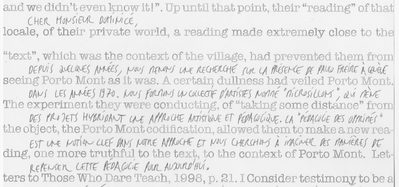 and we didn't even know it!". Up until that point, their "reading" of that
CHER MONSIEUR DOMINICE,
locale, of their private world, a reading made extremely close to the
"text", which was the context of the village, had prevented them from
DEPUIS QUELQUES ANNÉES, NOUS MENONS UNE RECHERCHE SUR LA PRÉSENCE DE PAULO FREIRE À GENÈVE
seeing Porto Mont as it was. A certain dullness had veiled Porto Mont.
DANS LES ANNÉES 1970. NOUS FORMONS UN COLLECTIF D'ARTISTES NOMMÉ "MICROSILLONS", QUI MÈNE
The experiment they were conducting, of "taking some distance" from
DES PROJETS HYBRIDANT UNE APPROCHE ARTISTIQUE ET PÉDAGOGIQUE. LA "PÉDAGOGIE DES OPPRIMÉS"
the object, the Porto Mont codification, allowed them to make a new rea-
EST UNE NOTION CLEF DANS NOTRE APPROCHE ET NOUS CHERCHONS À IMAGINER DES MANIÈRES DE
ding, one more truthful to the text, to the context of Porto Mont. Let-
REPENSER CETTE PÉDAGOGIE POUR AUJOURD'HUI.
ters to Those Who Dare Teach, 1998, p. 21. I Consider testimony to be a